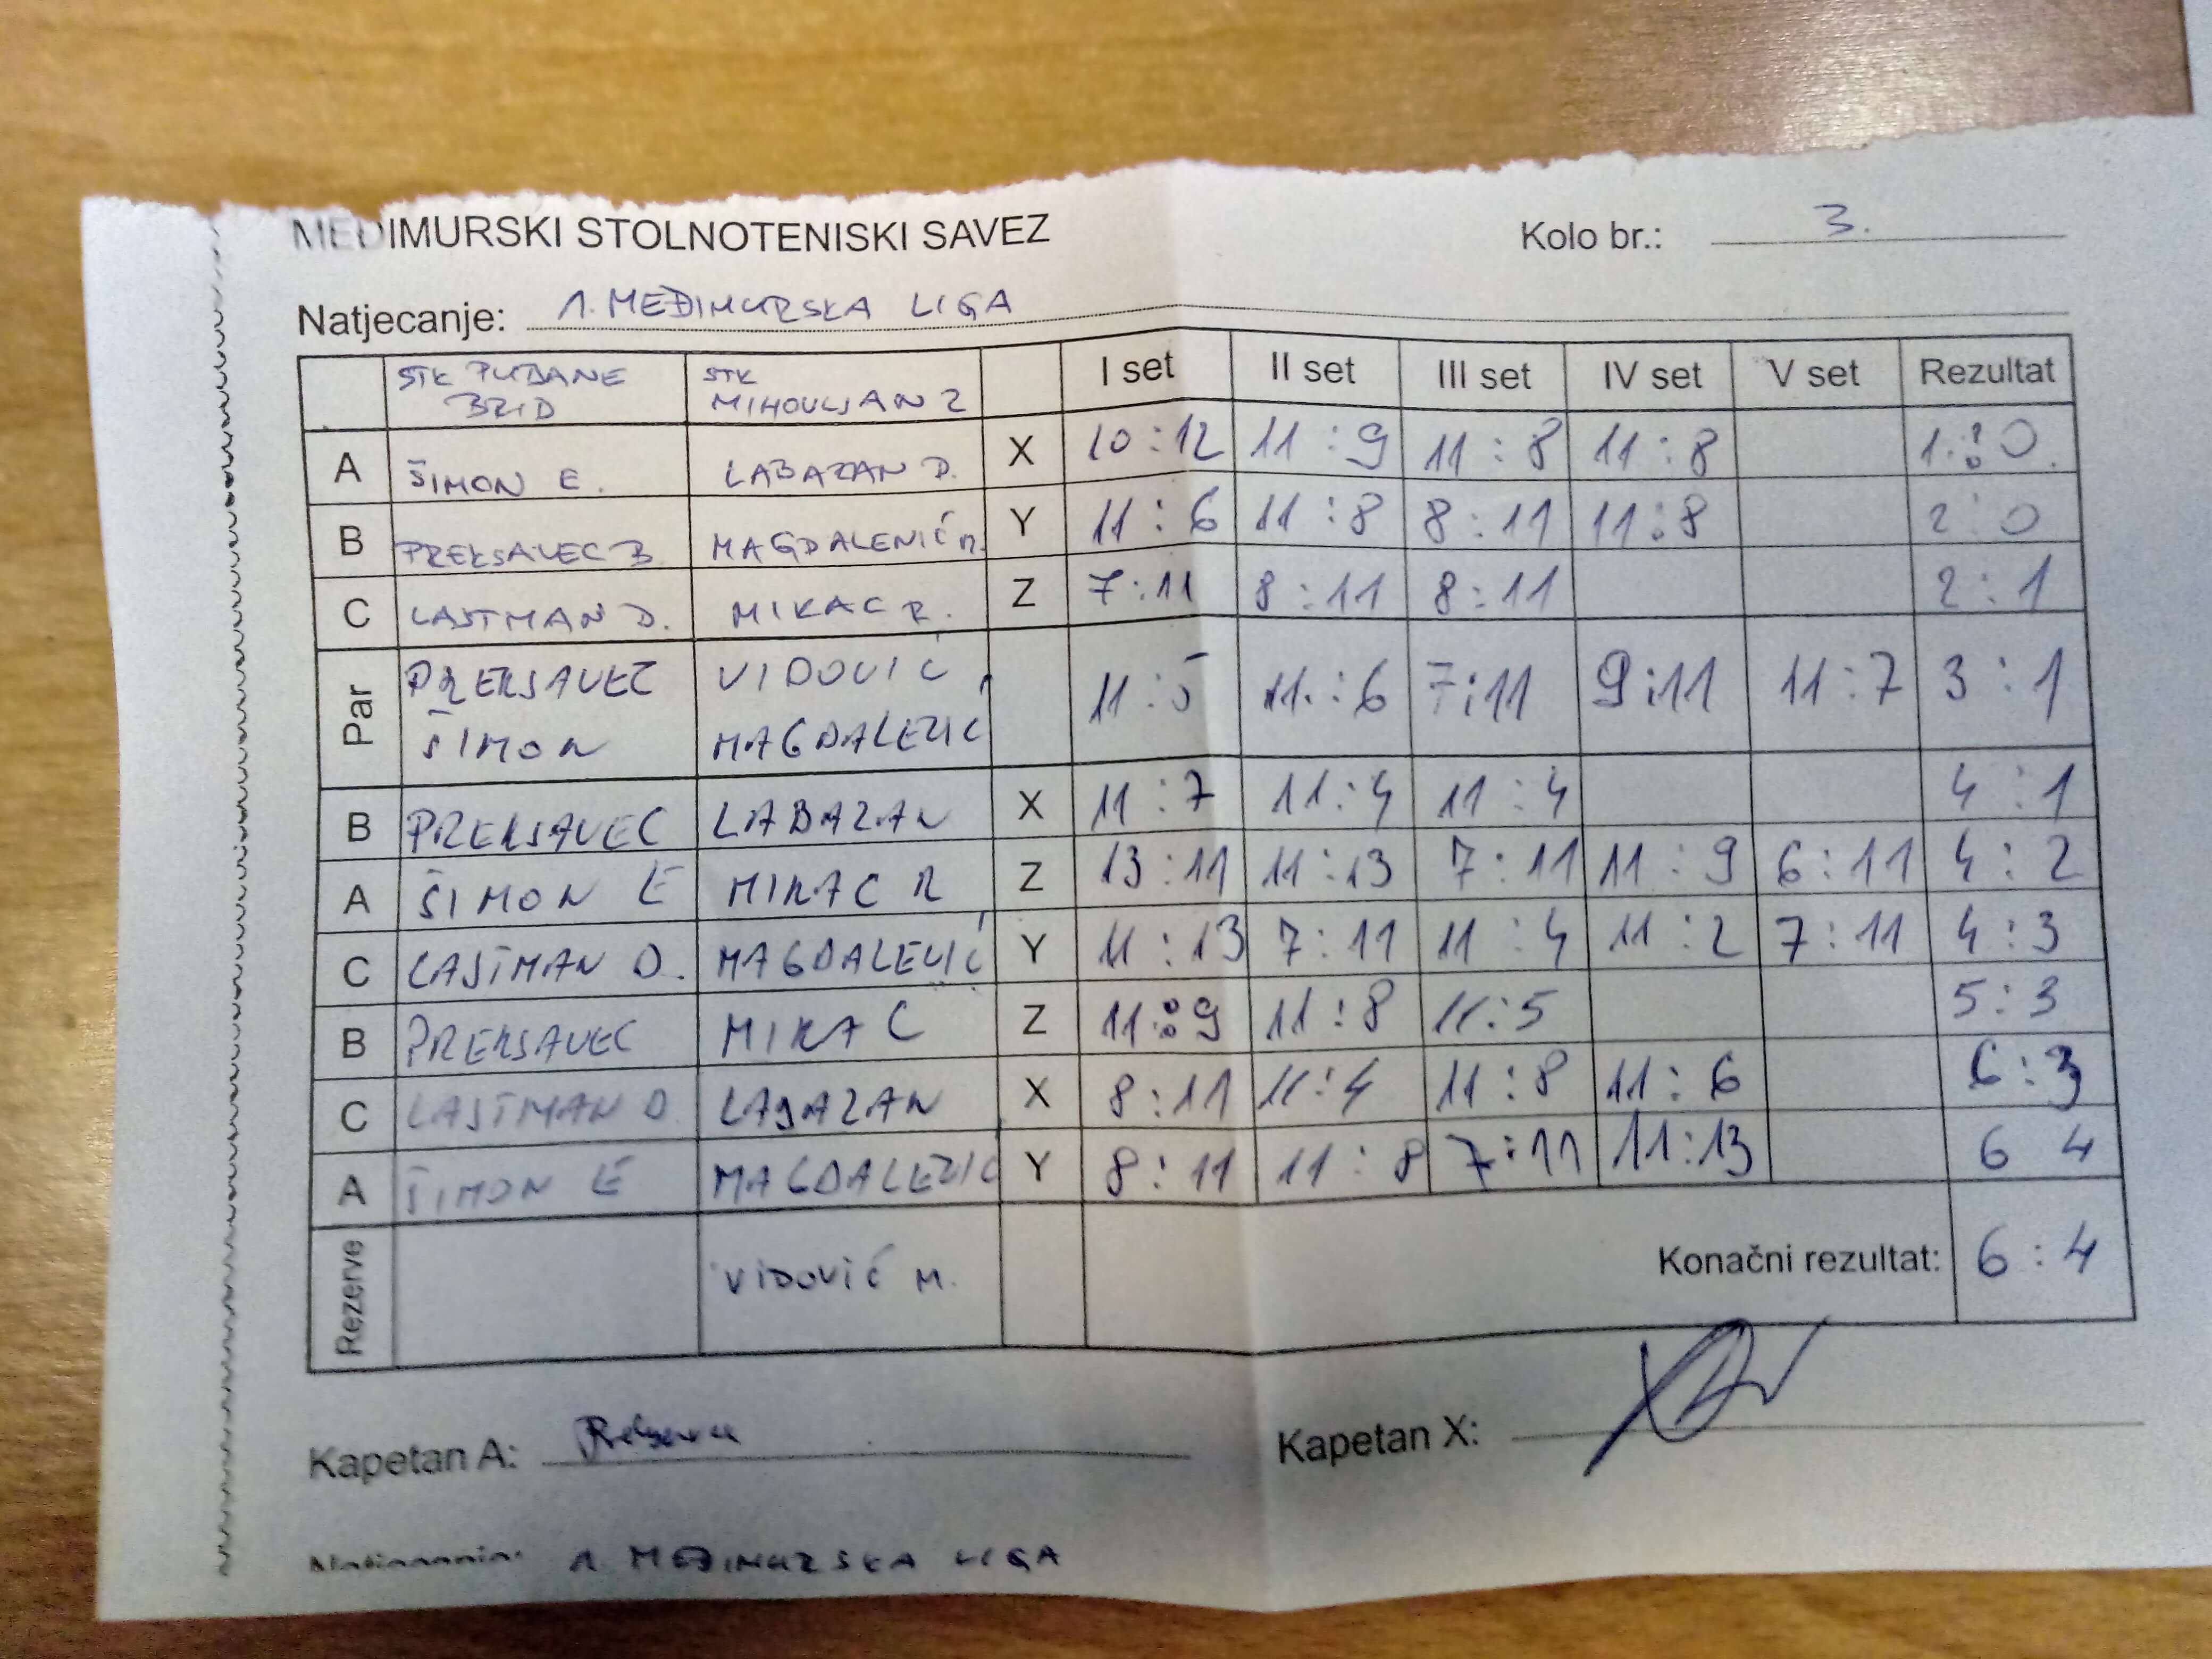 MEĐIMURSKI STOLNOTENISKI SAVEZ Kolo br.: 3.
Natjecanje: 1. MEĐIMURSKA LIGA
STK PUBANE BRID STK MIHOVLJAN 2 I set II set III set IV set V set Rezultat
A ŠIMON E. LABAZAN D. X 10:12 11:9 11:8 11:8 1:0
B PREKSAVEC B. MAGDALENIĆ M. Y 11:6 11:8 8:11 11:8 2:0
C LASTMAN D. MIKAC R. Z 7:11 8:11 8:11 2:1
Par PREKSAVEC VIDOVIĆ 11:5 11:6 7:11 9:11 11:7 3:1
ŠIMON MAGDALENIĆ
B PREKSAVEC LABAZAN X 11:7 11:4 11:4 4:1
A ŠIMON E MIKAC R Z 13:11 11:13 7:11 11:9 6:11 4:2
C LASTMAN D. MAGDALENIĆ Y 11:13 7:11 11:4 11:2 7:11 4:3
B PREKSAVEC MIKAC Z 11:9 11:8 11:5 5:3
C LASTMAN D. LABAZAN X 8:11 11:4 11:8 11:6 6:3
A ŠIMON E MAGDALENIĆ Y 8:11 11:8 7:11 11:13 6 4
Rezerve VIDOVIĆ M. Konačni rezultat: 6:4
Kapetan A: Kapetan X:
Natjecanje: 1. MEĐIMURSKA LIGA